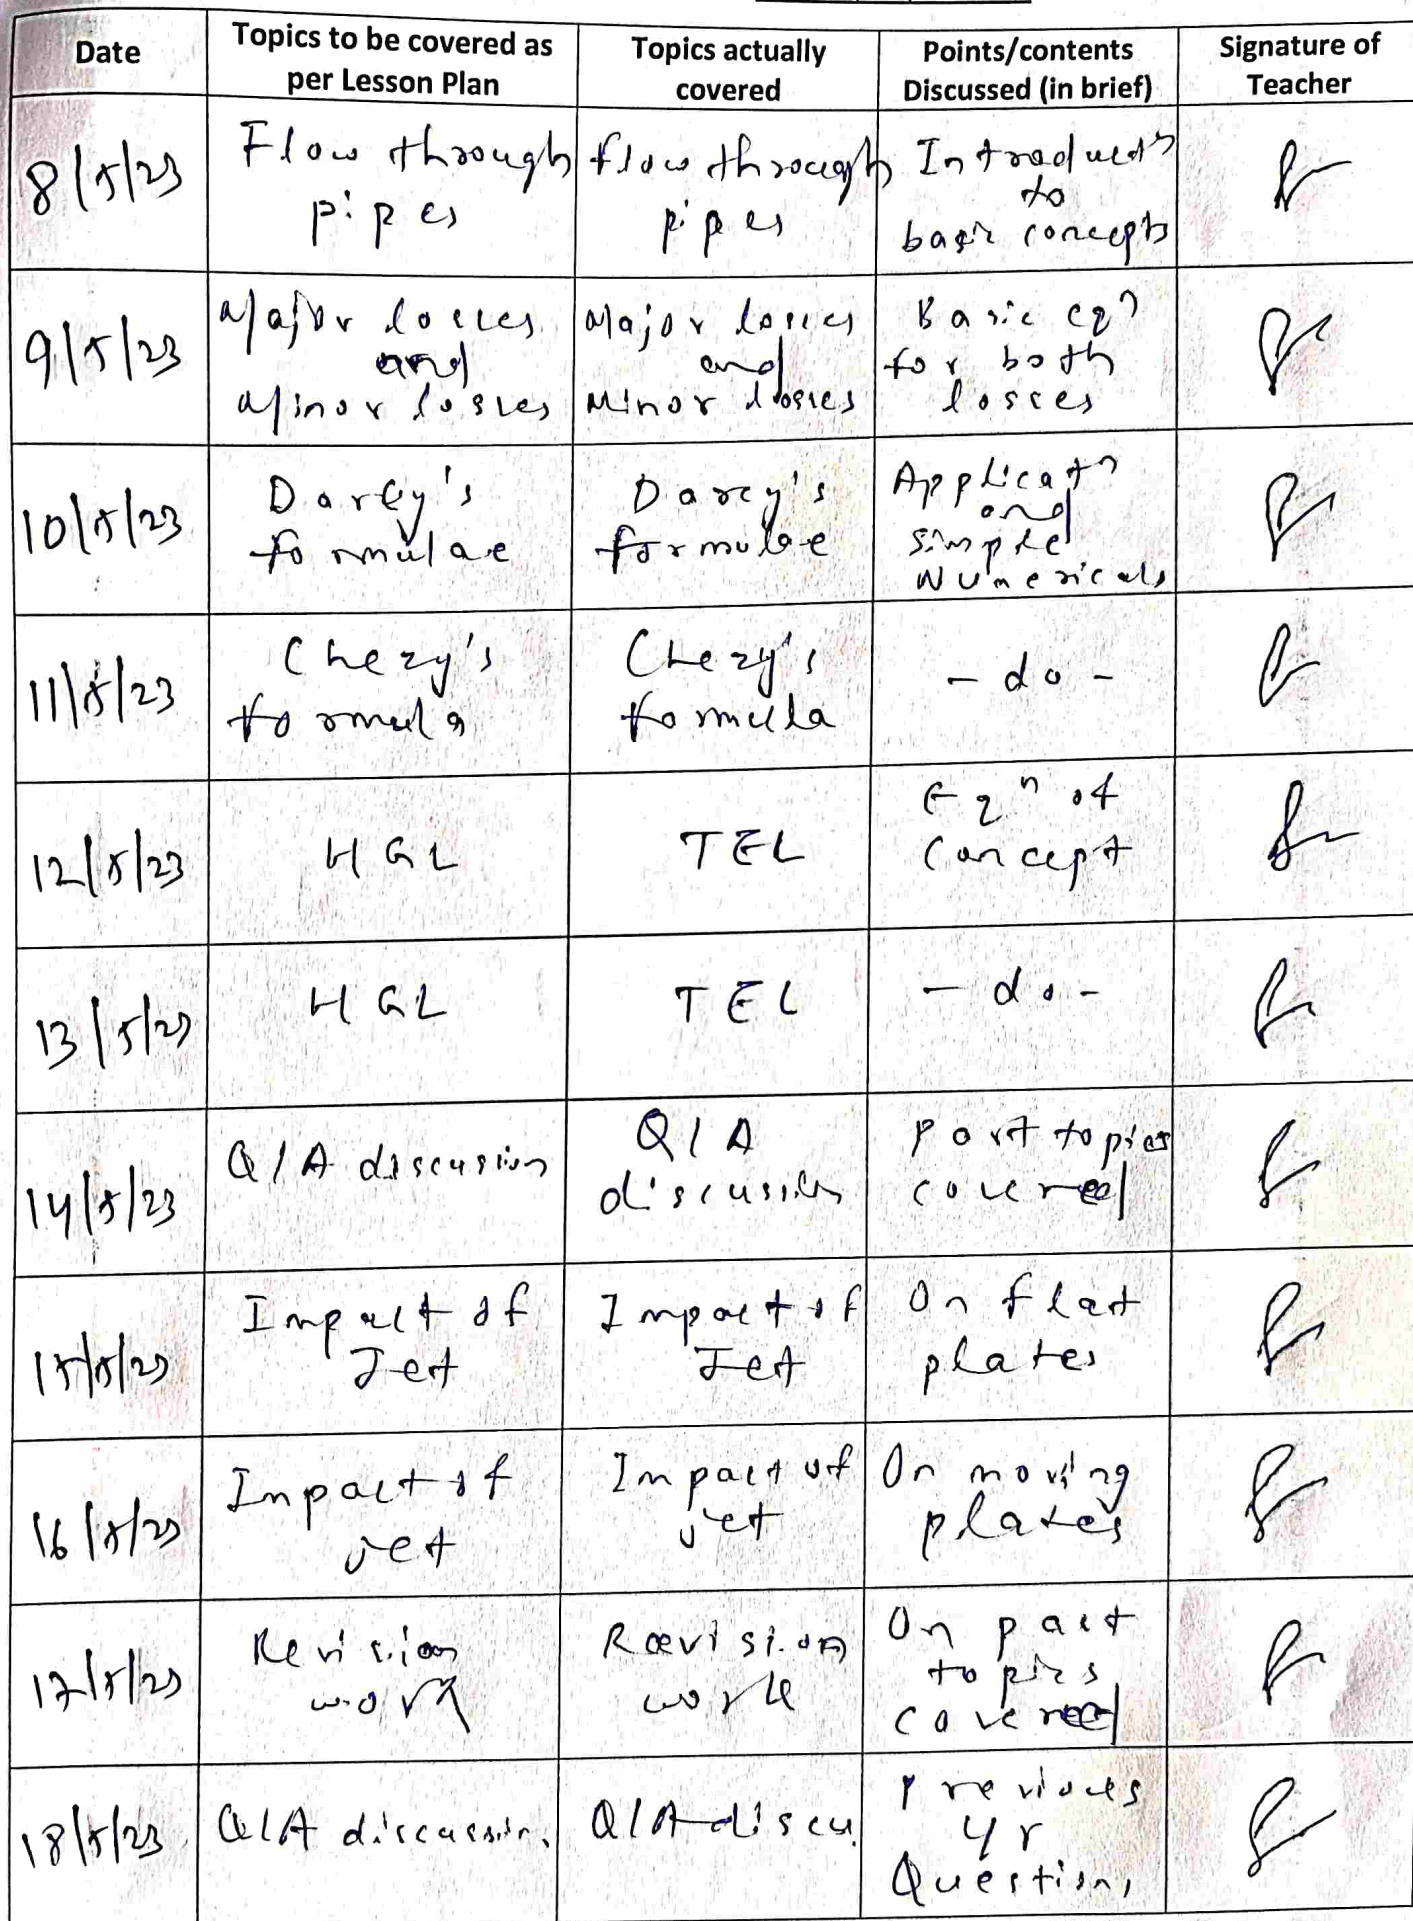 Date
Topics to be covered as
per Lesson Plan
Topics actually
covered
Points/contents
Discussed (in brief)
Signature of
Teacher
8/5/23
Flow through
pipes
flow through
pipes
Introductn
to
basic concepts
9/5/23
Major losses
and
Minor losses
Major losses
and
Minor losses
Basic eqn
for both
losses
10/5/23
Darcy's
formulae
Darcy's
formulae
Applicatn
and
simple
Numericals
11/5/23
Chezy's
formula
Chezy's
formula
- do -
12/5/23
HGL
TEL
Eqn of
Concept
13/5/23
HGL
TEL
- do -
14/5/23
Q/A discussion
Q/A
discussion
past topics
covered
15/5/23
Impact of
Jet
Impact of
Jet
On flat
plates
16/5/23
Impact of
jet
Impact of
jet
On moving
plates
17/5/23
Revision
work
Revision
work
On past
topics
covered
18/5/23
Q/A discussion
Q/A discu
Previous
yr
Questions